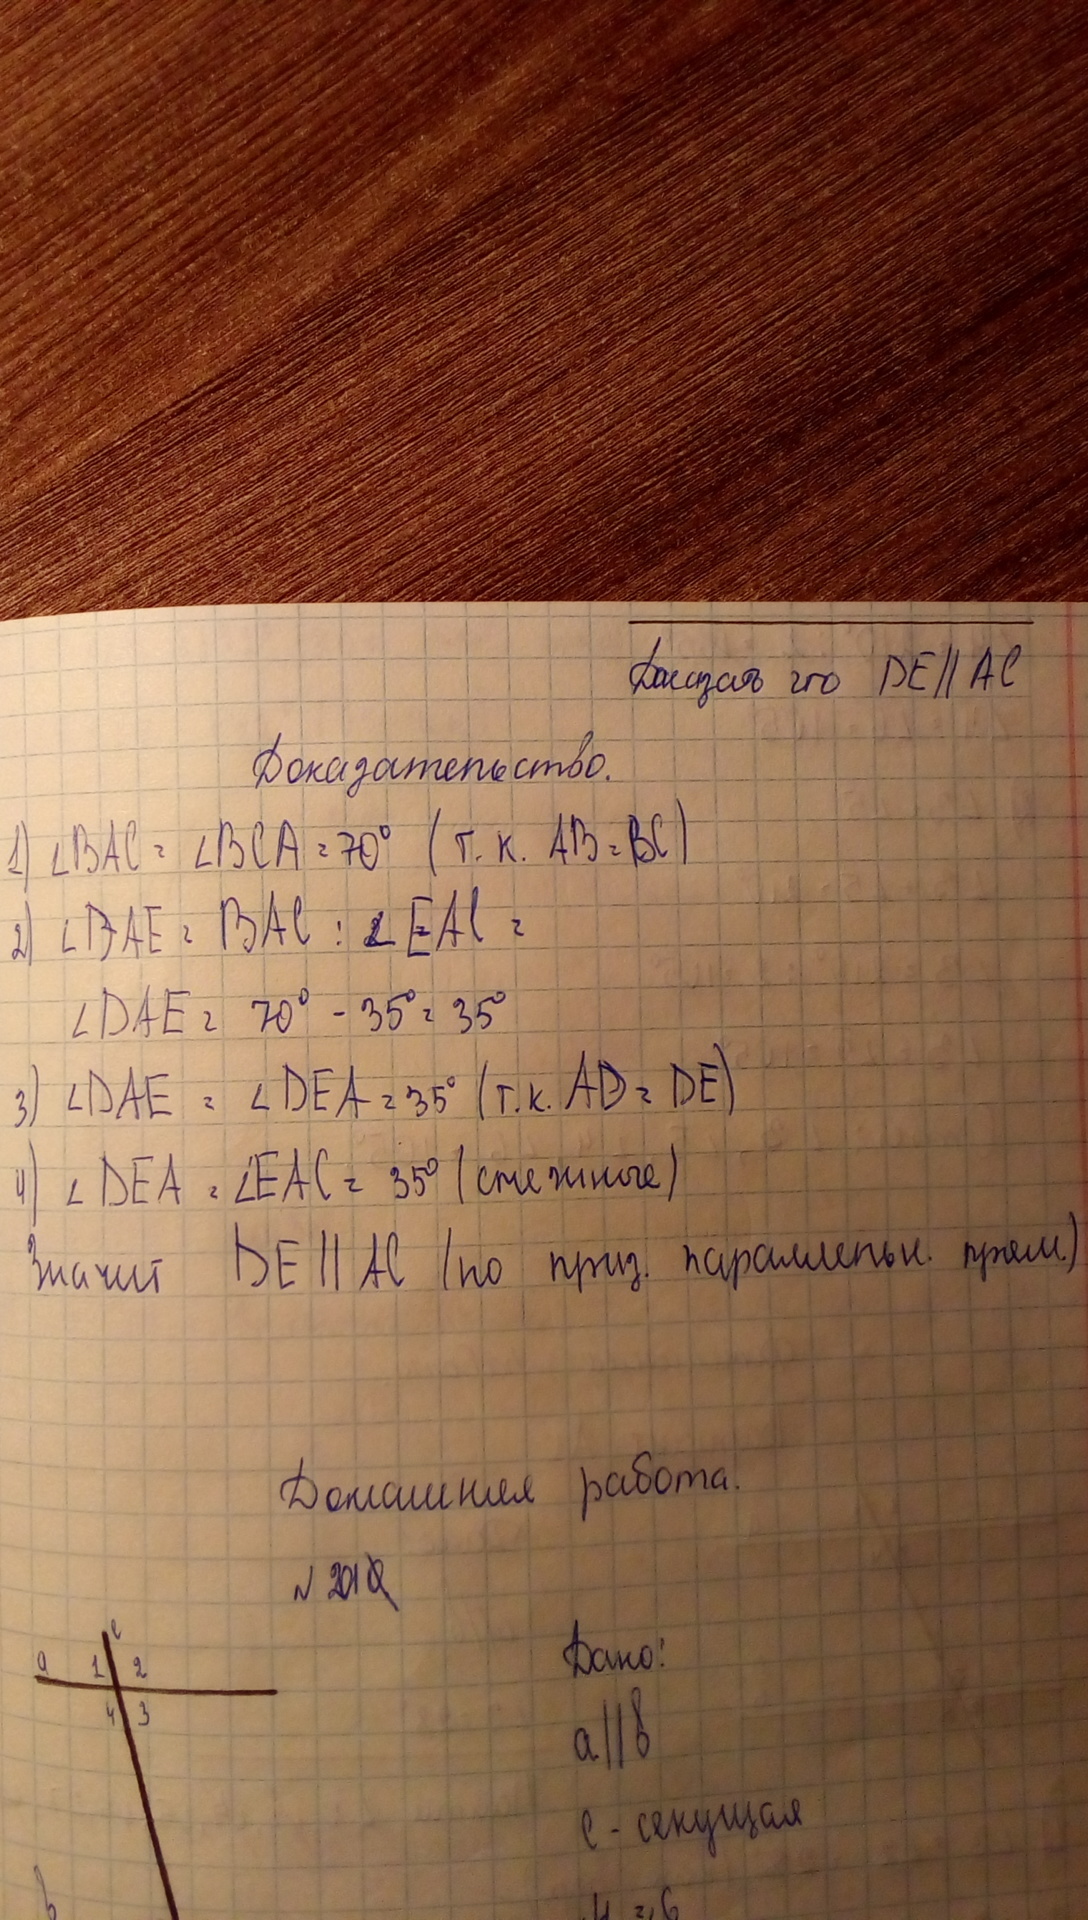 Доказать что DE||AC
Доказательство.
1) ∠BAC = ∠BCA = 70° (т.к. AB=BC)
2) ∠BAE = BAC : ∠EAC =
∠DAE = 70° - 35° = 35°
3) ∠DAE = ∠DEA = 35° (т.к. AD = DE)
4) ∠DEA = ∠EAC = 35° (смежные)
Значит DE || AC (по приз. параллельн. прям.)
Домашняя работа.
N 201
c
a 1 2
4 3
b
Дано:
a||b
c - секущая